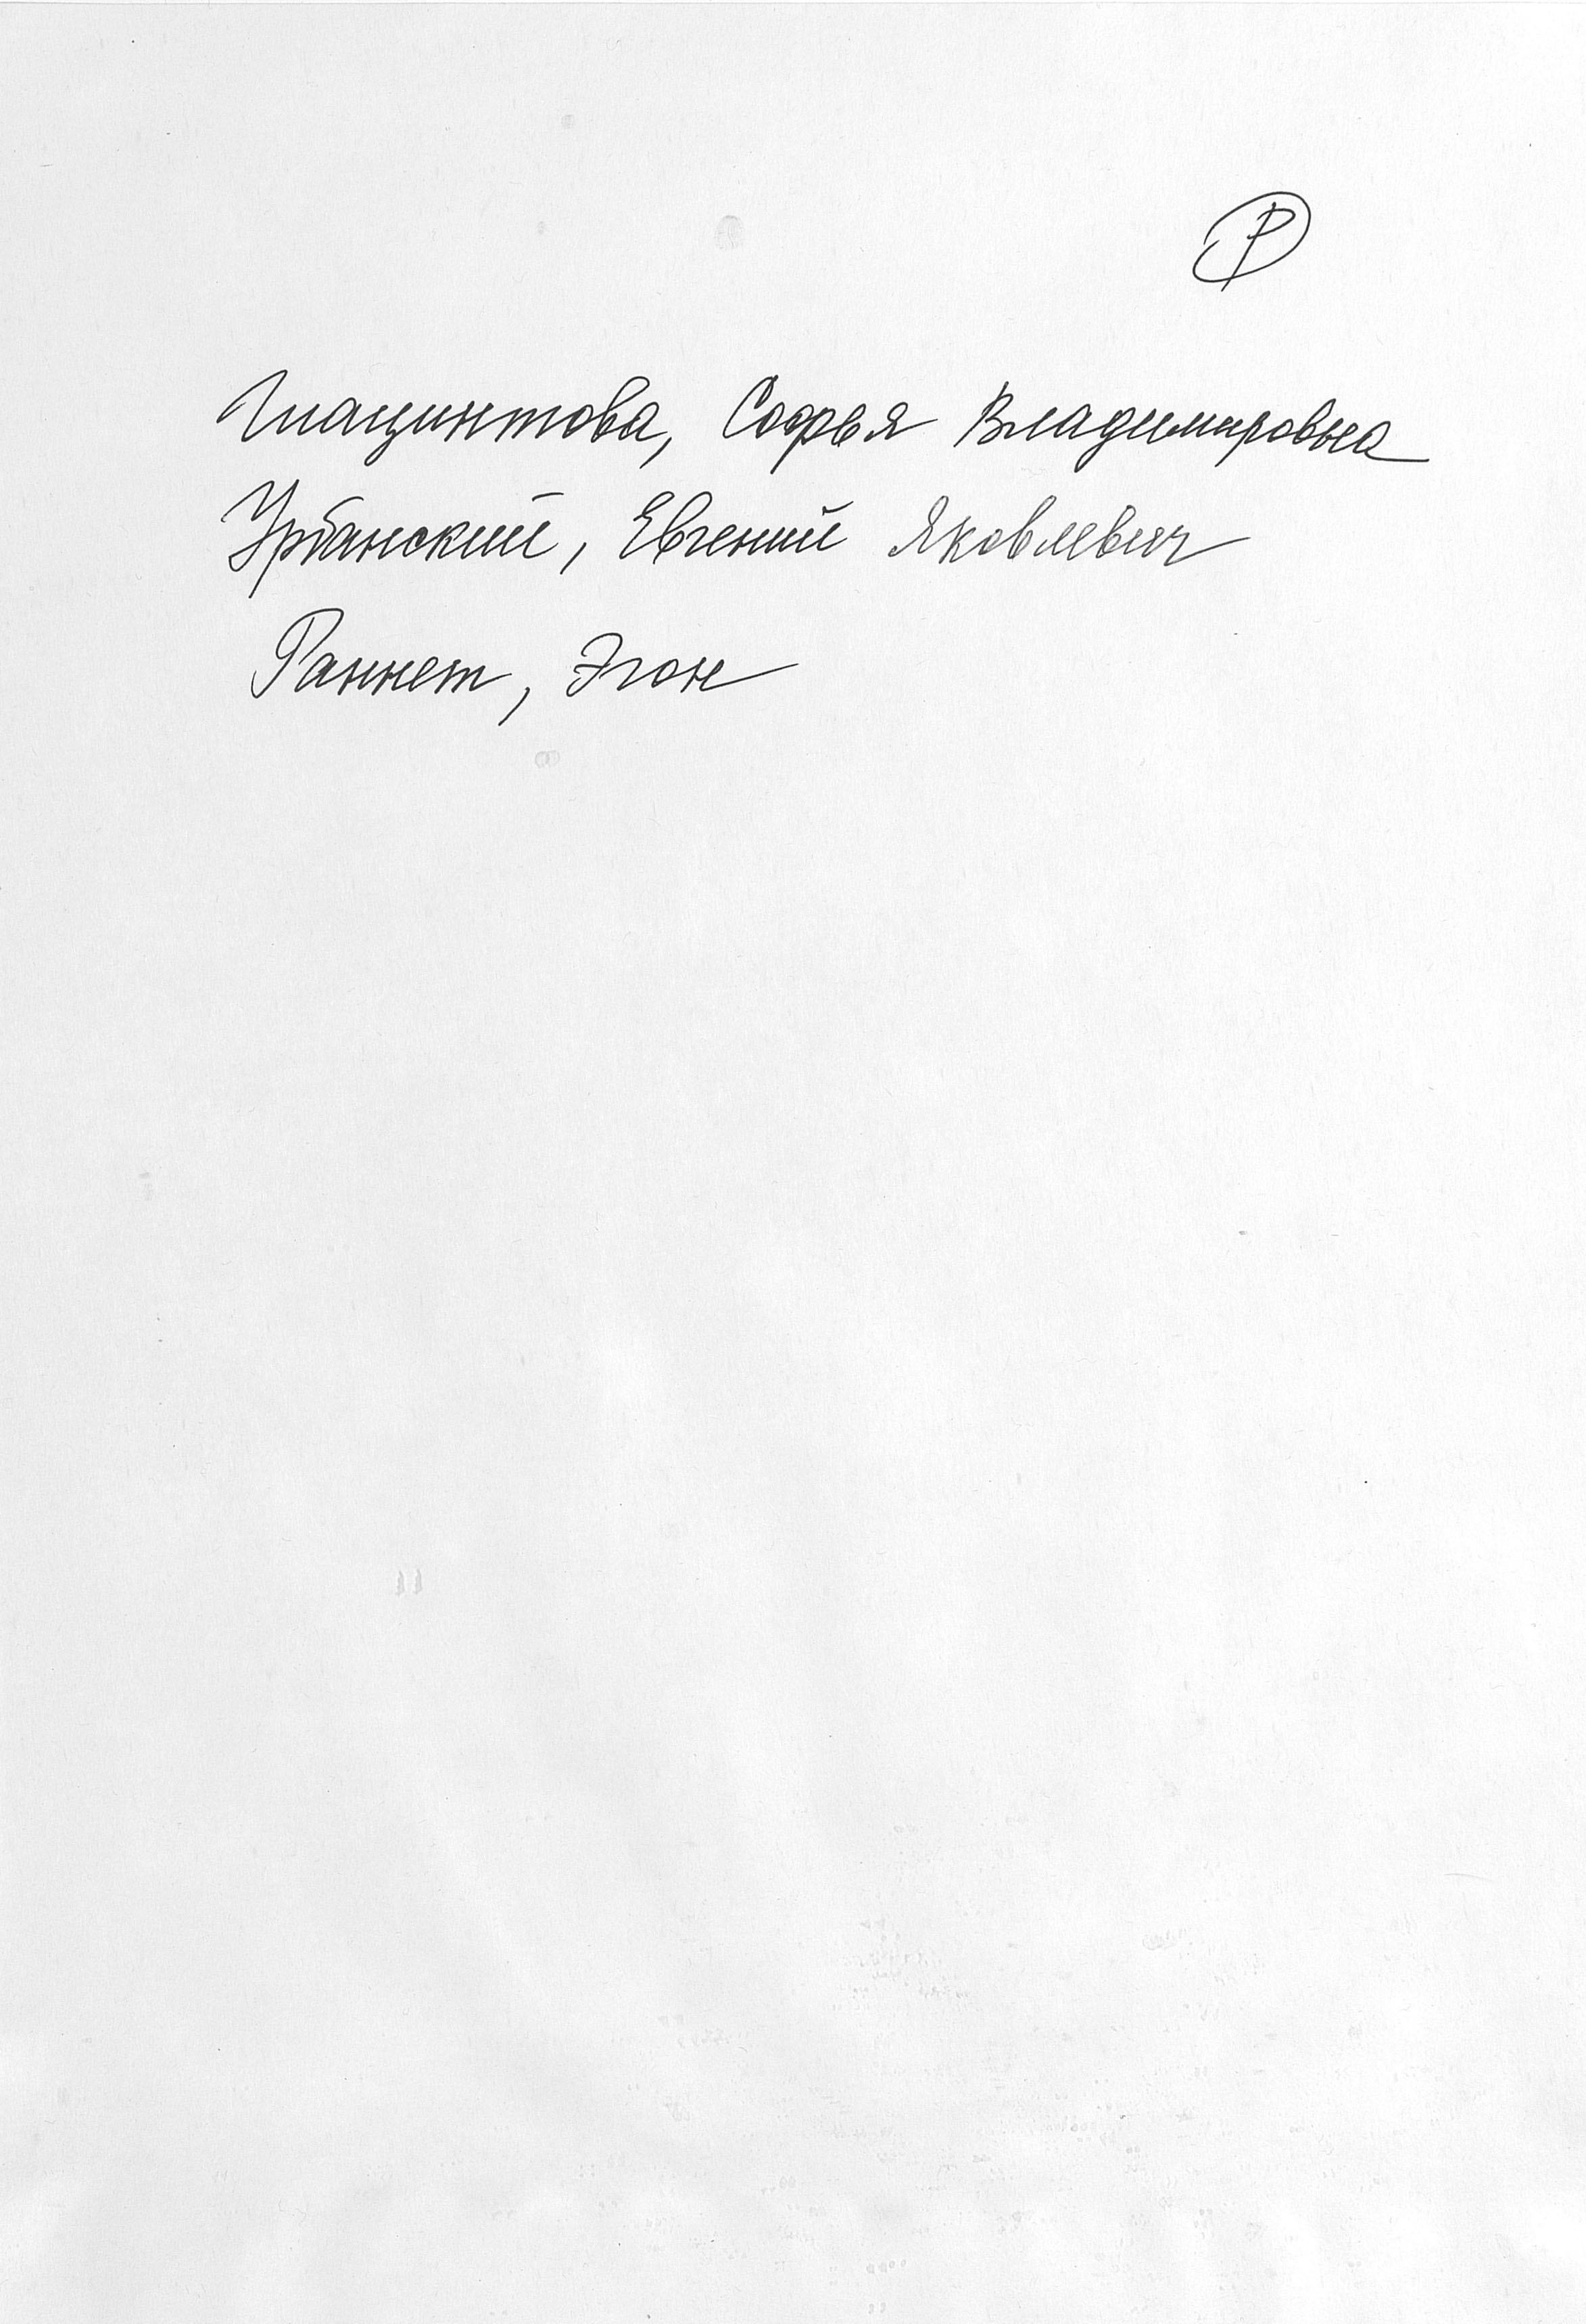 Р
Гиацинтова, Софья Владимировна
Урбанский, Евгений Яковлевич
Раннет, Эгон